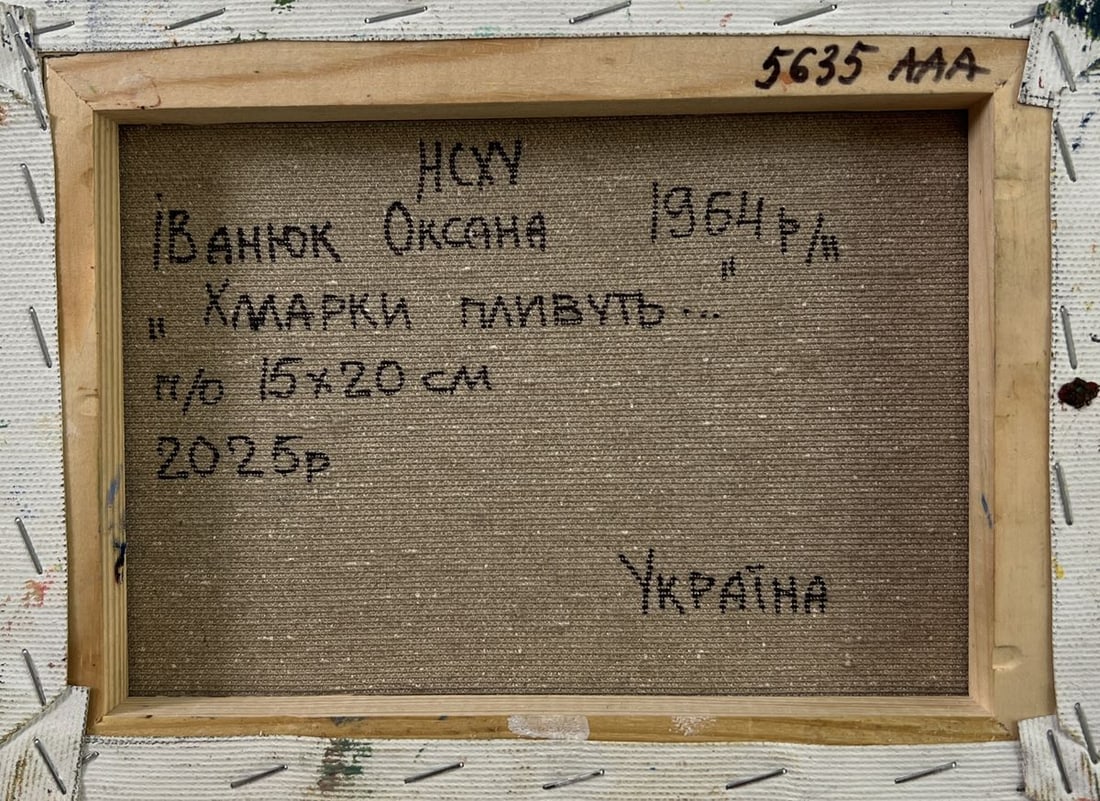 5635 ААА
НСХУ
Іванюк Оксана 1964 р/н
„Хмарки пливуть..."
п/о 15х20 см
2025р
Україна